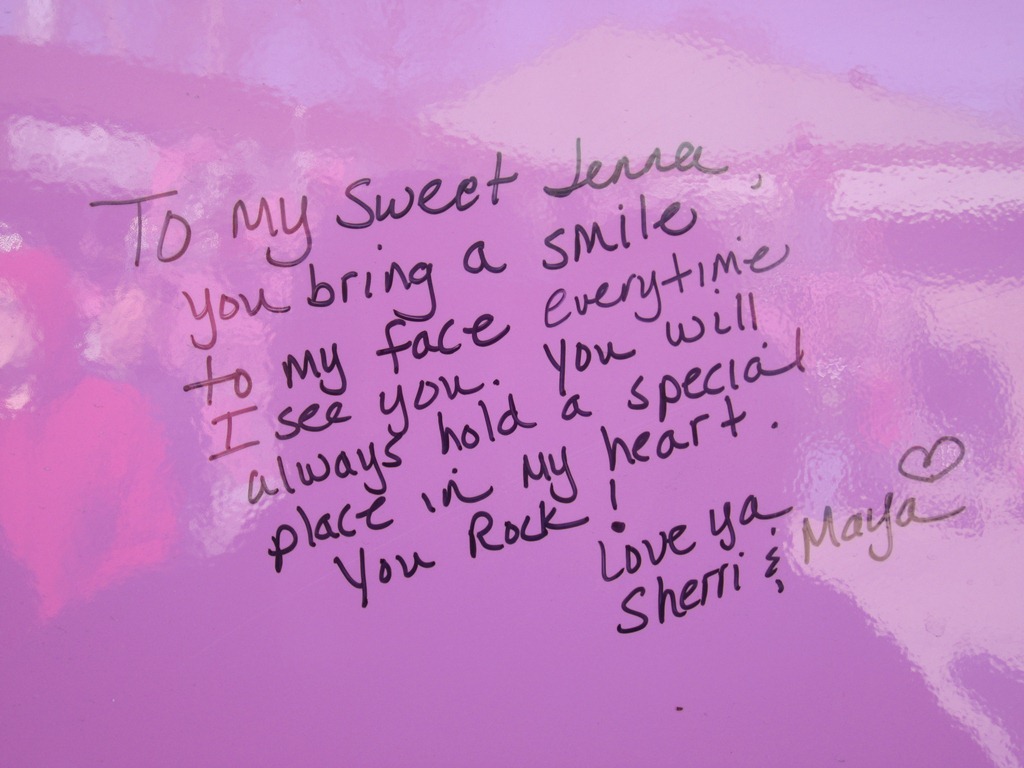 To My Sweet Jenna,
you bring a smile
to my face everytime
I see you. You will
always hold a special
place in my heart.
You Rock!
Love ya
Sherri & Maya ♡